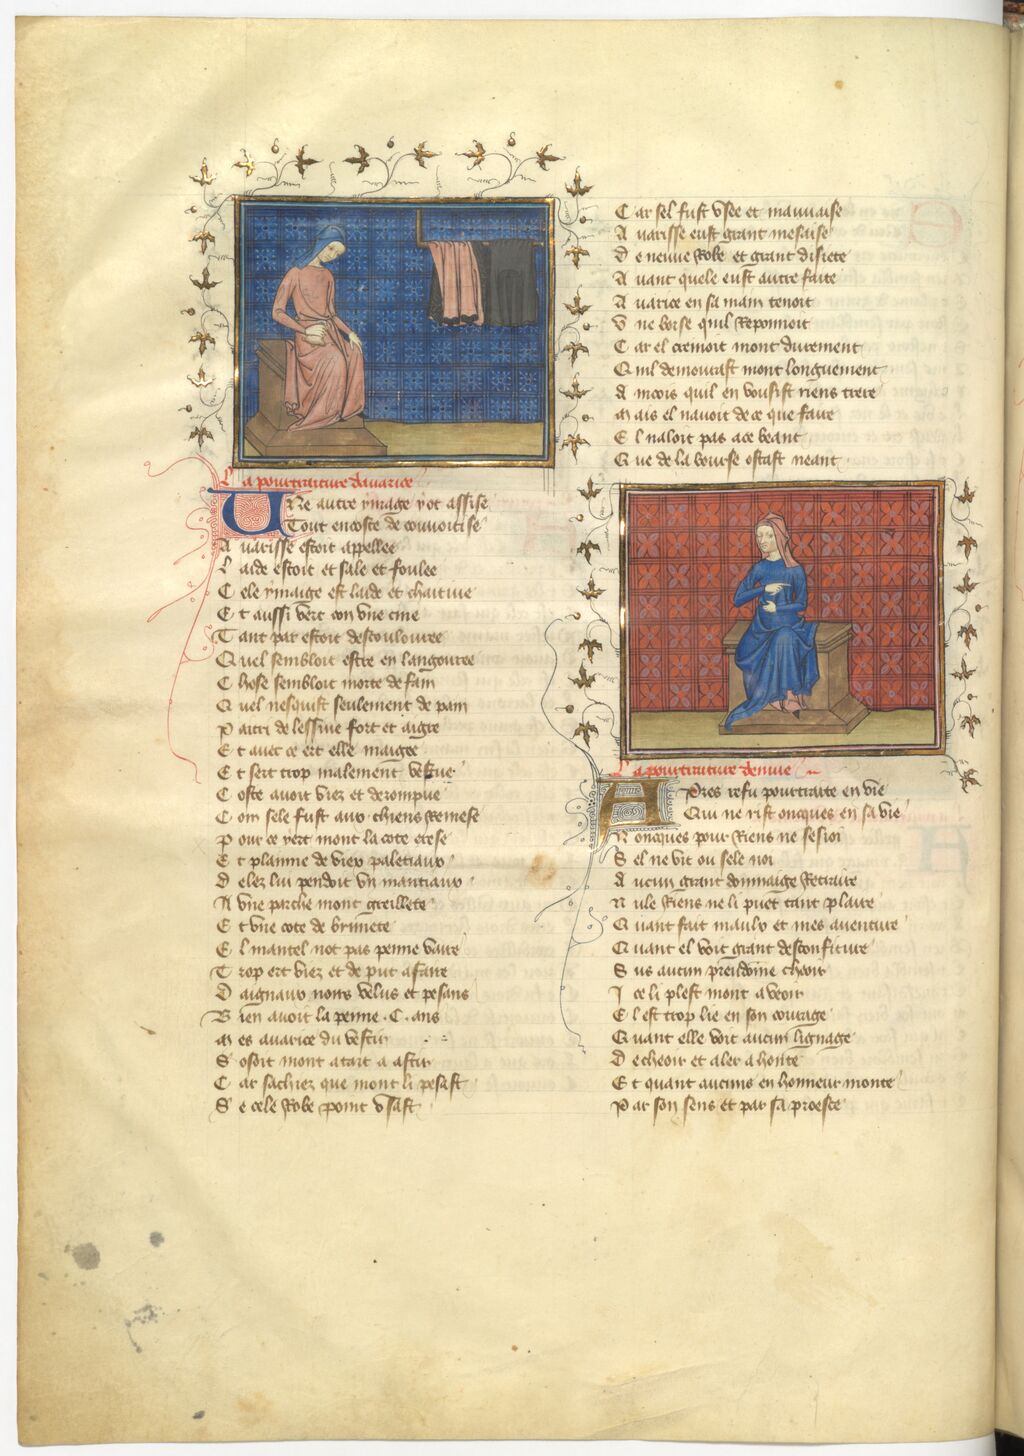 La pourtraiture davarice
Une autre ymage y ot assise
Tout encoste de couvoitise
Avarisse estoit appellee
Laide estoit et sale et foulee
Cele ymaige est laide et chaitive
Et aussi vert con une cive
Tant par estoit descoulouree
Quel sembloit estre en langouree
Chose sembloit morte de fain
Quel vesquist seulement de pain
Paitri de lessive fort et aigre
Et avec ce ert elle maigre
Et sert trop malement vestue
Coste avoit viez et derompue
Com sele fust aus chiens remese
Pour ce yert mont la cote erese
Et plainne de viex paletiaux
Delez lui pendoit un mantiaux
A une parche mont greillete
Et une cote de brunete
El mantel not pas penne vaire
Trop ert viez et de put afaire
Daignaux noirs velus et pesans
Bien avoit la penne .C. ans
Mes avarice du vestir
Sosoit mont atart aastir
Car sachiez que mont li pesast
Se cele robe point usast
Car sel fust usee et mauvaise
Avarisse eust grant mesaise
De neuve robe et grant disiete
Avant quele eust autre faite
Avarice en sa main tenoit
Une borse quil reponnoit
Car el cremoit mont durement
Quil demourast mont longuement
Aincois quil en vousist riens trere
Mais el navoit de ce que faire
El naloit pas a ce beant
Que de la bourse ostast neant
La pourtraiture denvie
Apres refu pourtraite envie
Qui ne rist oncques en sa vie
Noncques pour riens ne sesioi
Sel ne vit ou sele noi
Aucun grant dommaige retraire
Nule riens ne li puet tant plaire
Quant fait maulx et mes aventure
Quant el voit grant desconfiture
Sus aucun preudome cheoir
Ice li plest mont a veoir
El est trop lie en son courage
Quant elle voit aucun lignage
Decheoir et aler a honte
Et quant aucuns en honneur monte
Par son sens et par sa proesce